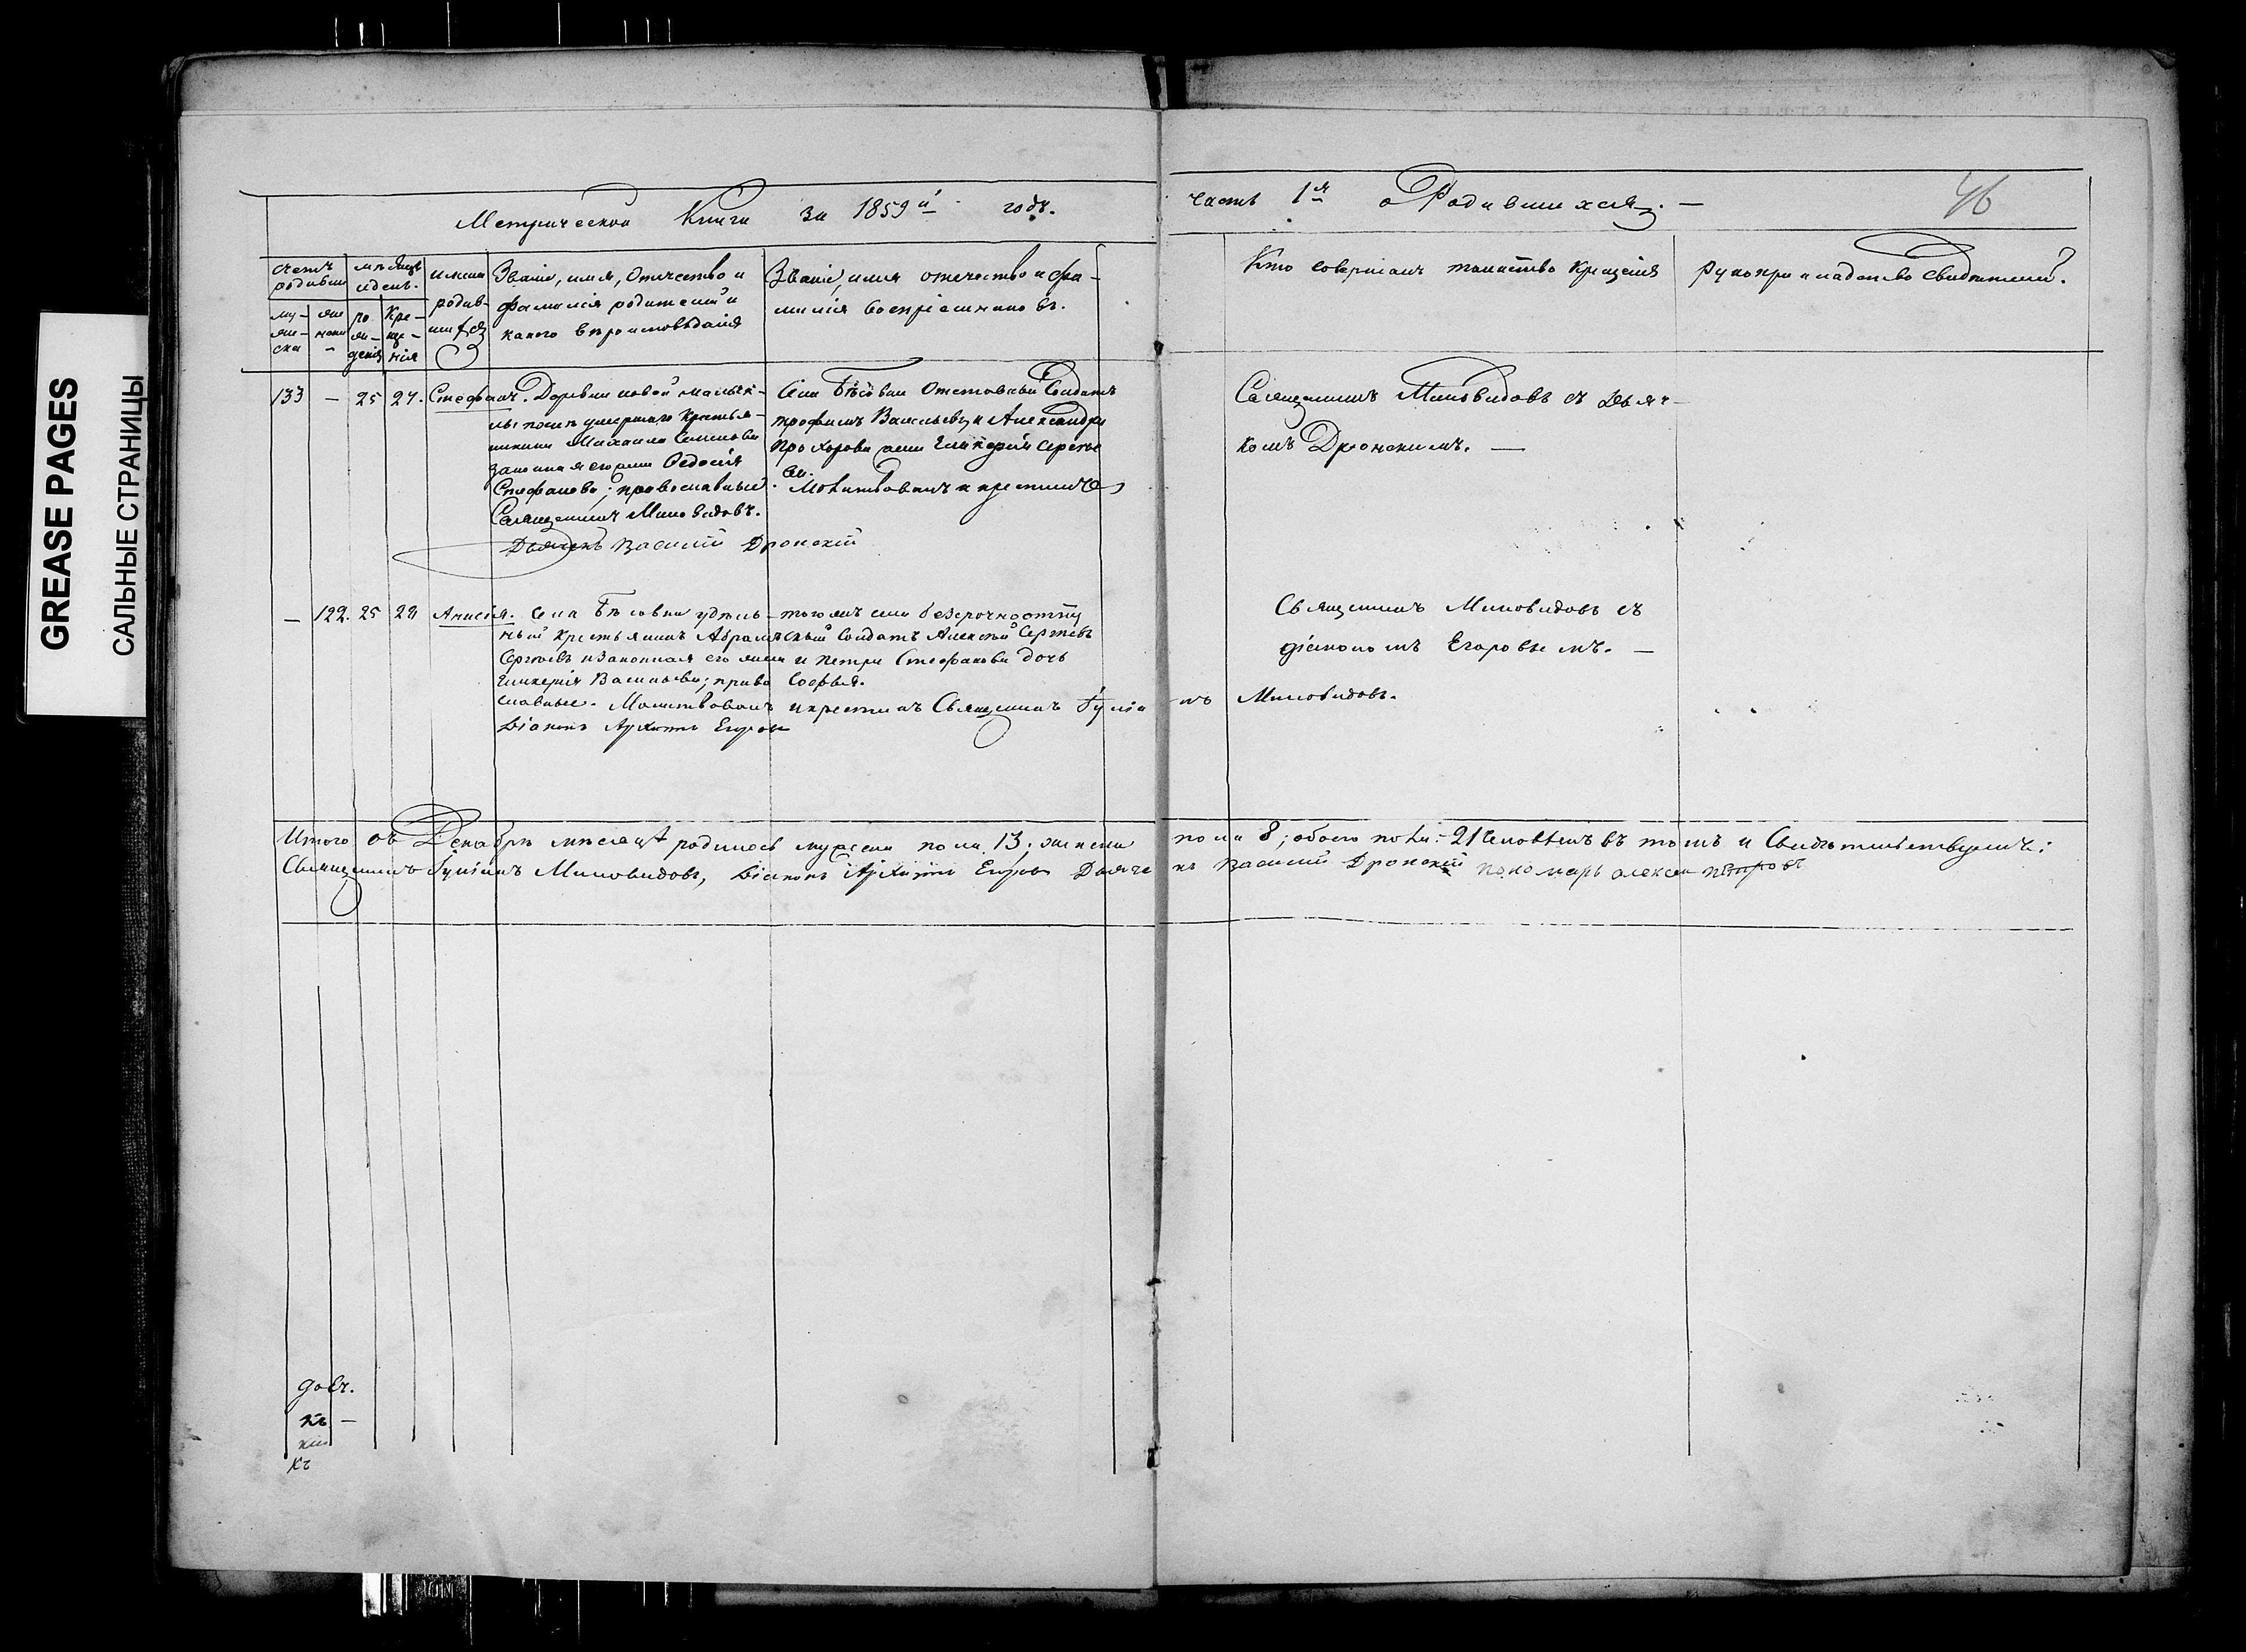 GREASE PAGES
САЛЬНЫЕ СТРАНИЦЫ
Метрической Книги за 1859й годъ.
часть 1я о Родившихся. —
46
счетъ родивши
мѣсяцъ и день.
имена родив-шихся
му-жеска
же-нска
ро-жденія
Кре-ще-нія
Званіе, имя, Отчество и
фамилія родителей и
какого вѣроисповѣданія
Званіе, имя отечество и фа-
милія воспріемниковъ.
Кто совершалъ таинство Крещенія
Рукоприкладство свидѣтелей.
133 — 25 27. Стефанъ. Деревни новой
послѣ умершаго Крестья-
нина Михаила Семенова
законная его жена Ѳедосія
Стефанова; православные.
Священникъ Миловидовъ.
Дьячекъ Василій Дронскій
Села Бѣсовки Отставной Солдатъ
трофимъ Васильевъ и Александра
Прохорова жена Гликерія Сергѣе
ва. Молитвовалъ и крестилъ
Священникъ Миловидовъ съ Дьяч-
комъ Дронскимъ. —
— 122. 25 28 Анисія. Села Бѣсовки удѣль-
ный крестьянинъ Абрамъ
Сергѣевъ и Законная его жена
Гликерія Васильева; право
славные. Молитвовалъ и крестилъ Священникъ Іуліа
Діаконъ Архиппъ Егоровъ
тогожъ села безсрочноотпу
скный Солдатъ Алексѣй Сергѣевъ
и Петра Стефанова дочь
Софья.
Священникъ Миловидовъ съ
діакономъ Егоровымъ. —
нъ Миловидовъ.
Итого въ Декабрѣ мѣсяцѣ родилось мужеска пола 13; женска пола 8; обоего пола: 21 человѣкъ въ томъ и Свидѣтельствуемъ:
Священникъ Іуліанъ Миловидовъ, Діаконъ Архиппъ Егоровъ Дьяче къ Василій Дронскій пономарь алексей петровъ
къ —
къ